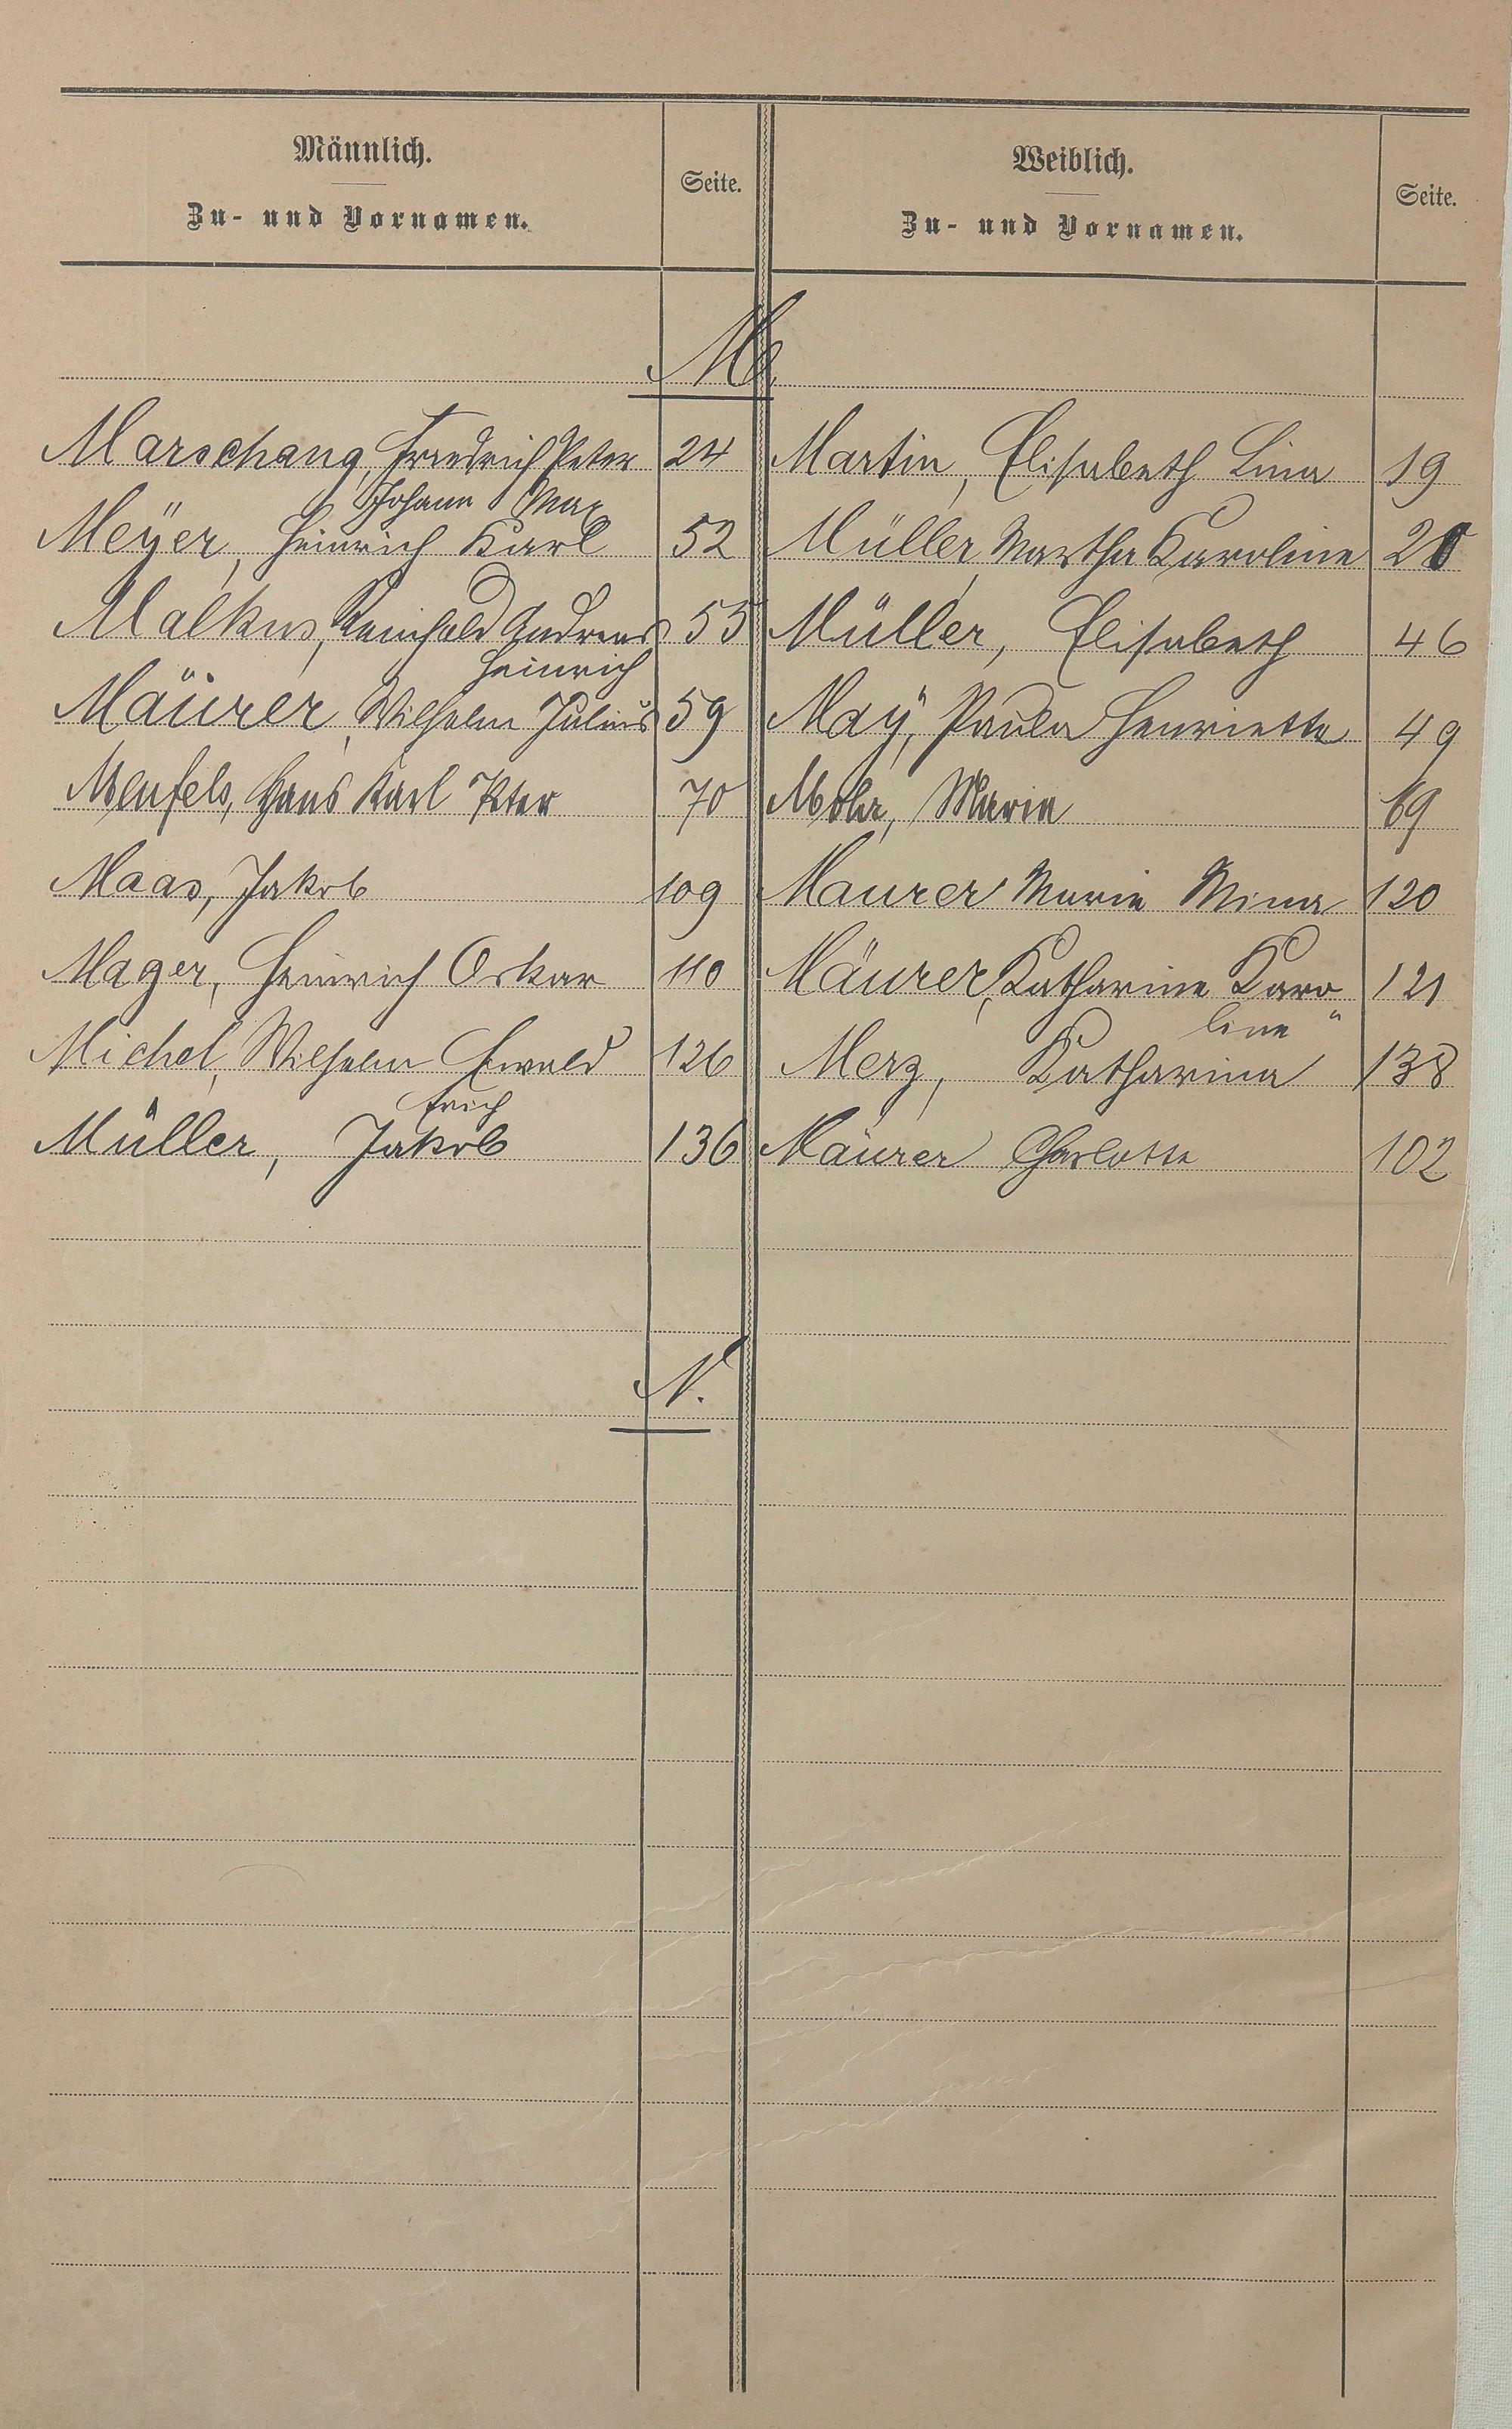 Männlich.
Zu- und Vornamen.
Seite.
Weiblich.
Zu- und Vornamen.
Seite.
M
Marschang, Friedrich Peter 24 Martin, Elisabeth Lina 19
Johann Max
Meÿer, Heinrich Karl 52 Müller, Martha Karoline 20
Malkus, Reinhold Andreas 55 Müller, Elisabeth 46
Heinrich
Mäurer, Wilhelm Julius 59 Maÿ, Paula Henriette 49
Menfels, Hans Karl Peter 70 Mohr, Maria 69
Maas, Jakob 109 Maurer Maria Mina 120
Mager, Heinrich Oskar 110 Mäurer, Katharine Karo 121
line
Michel, Wilhelm Ewald 126 Merz, Katharina 138
Erich
Müller, Jakob 136 Mäurer Charlotte 102
N.